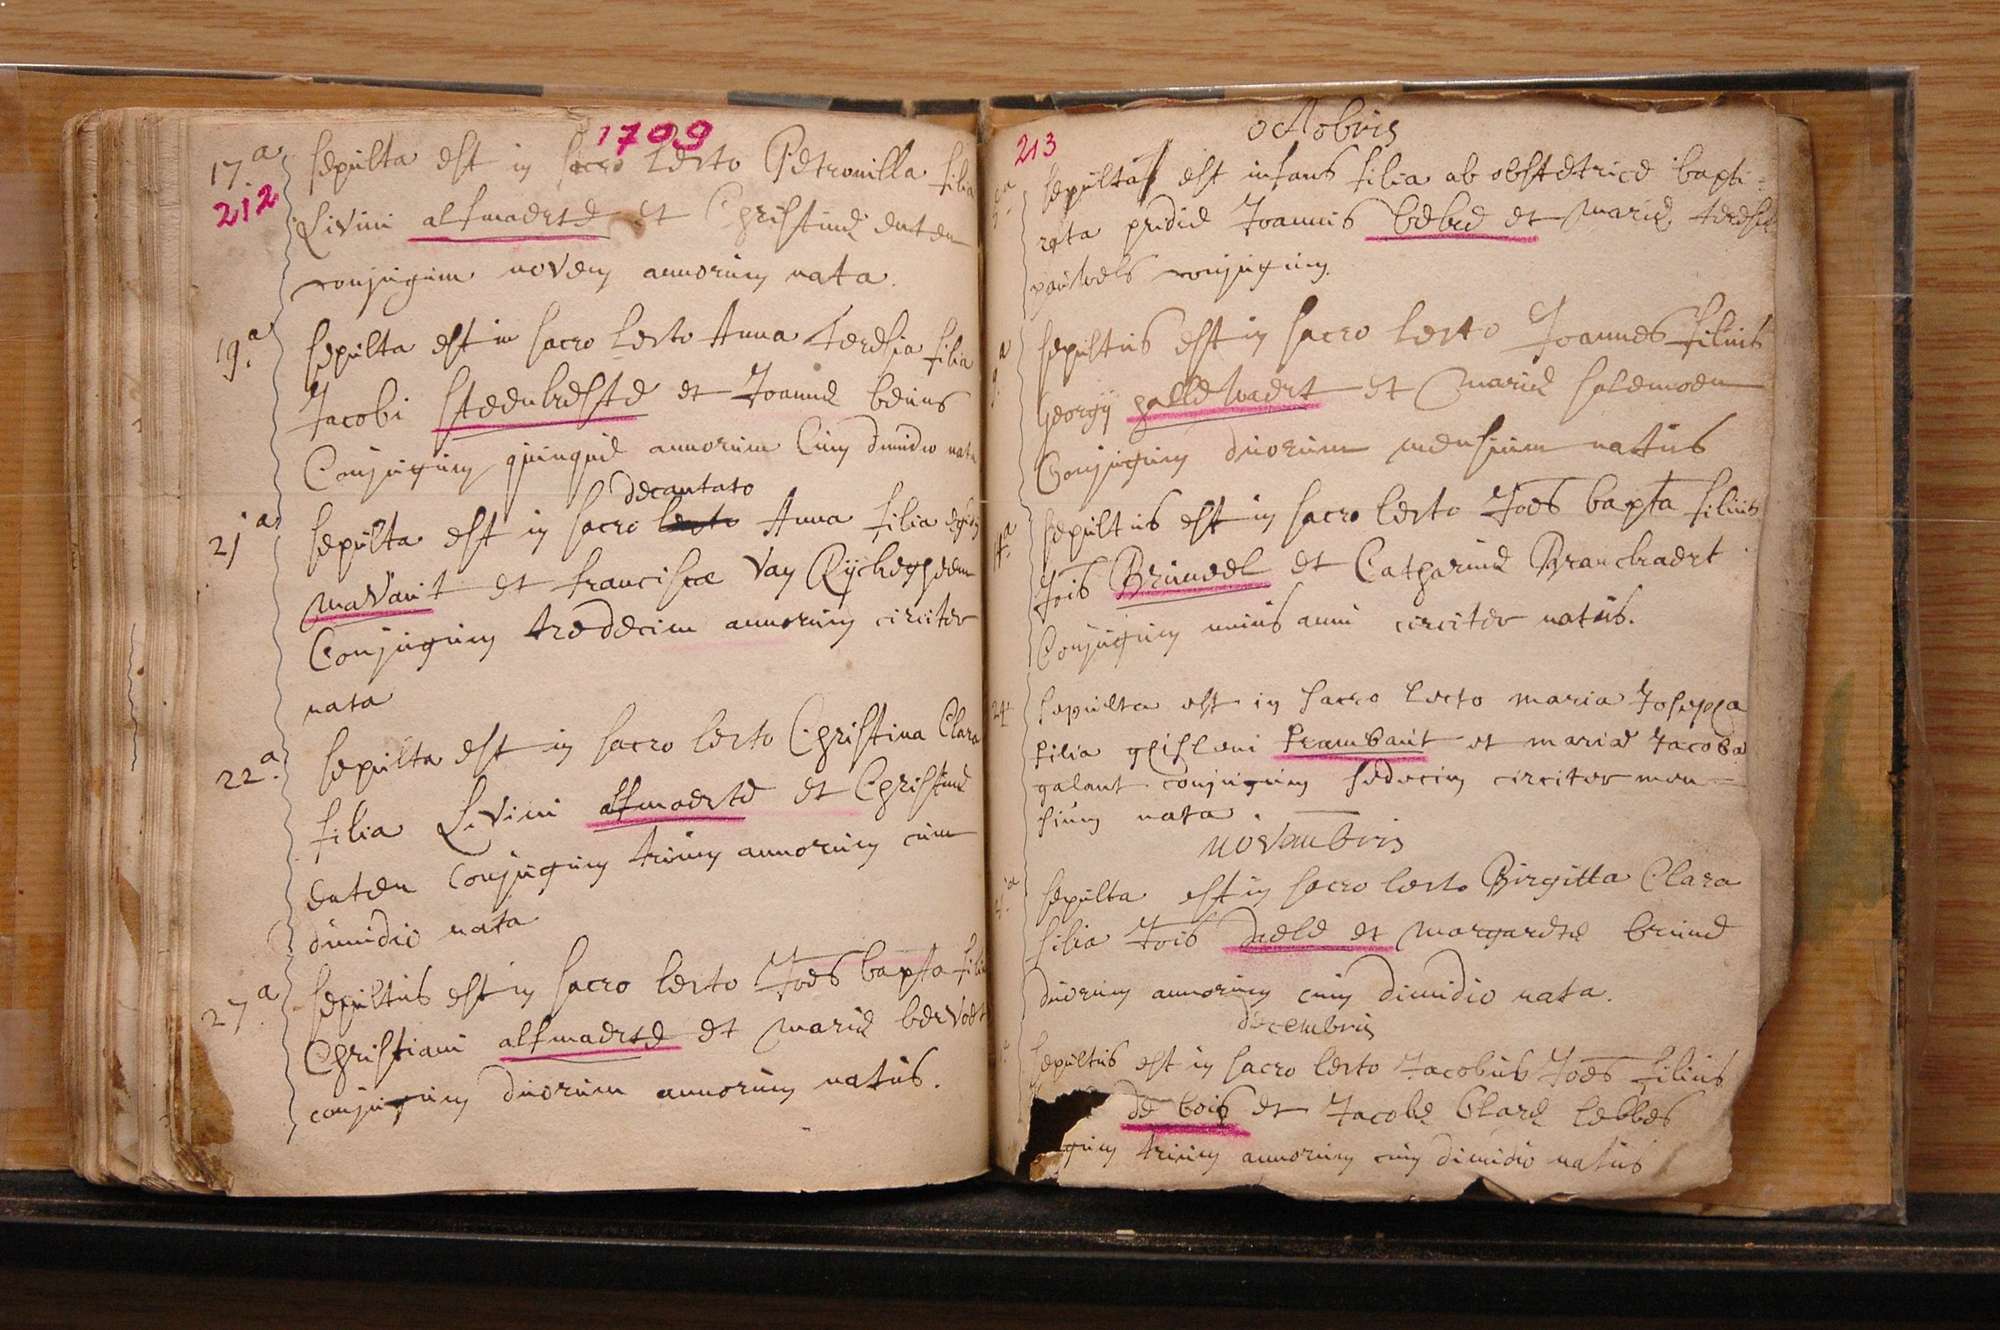 1709
17.a sepulta est in sacro lecto Petronilla filia
212
Livini alsmaerte et Christinæ euten
conjugum novem annorum nata.
19.a sepulta est in sacro lecto Anna Teresia filia
Jacobi steenbeste et Joannæ beuns
Conjugum quinque annorum Cum dimidio nata
decantato
21a sepulta est in sacro lecto Anna filia
mavaut et francisce Van Rÿckeghem
Conjugum tredecim annorum circiter
nata
22a. sepulta est in sacro lecto Christina Clara
filia Livini alsmaerte et Christinæ
euten conjugum trium annorum cum
dimidio nata
27.a sepultus est in sacro lecto Joes bapta
Christiani alsmaerte et mariæ bervoet
conjugum duorum annorum natus.
213
octobris
sepulta est infans filia ab obstetrice bapti-
zata pridie Joannis et mariæ teresiæ
pauwels conjugum.
sepultus est in sacro lecto Joannes filius
Georgÿ gallewaert et mariæ salemoen
Conjugum duorum mensium natus
14a sepultus est in sacro lecto Joes bapta filius
Jois Bruneel et Catharinæ Brancbaert
Conjugum unius anni circiter natus.
24 sepulta est in sacro lecto maria Josepha
filia ghisleni frambaut et mariæ Jacoba
galant conjugum sedecim circiter men-
sium nata
novembris
sepulta est in sacro lecto Birgitta Clara
filia Jois daele et margaretæ brunæ
duorum annorum cum dimidio nata.
decembris
sepultus est in sacro lecto Jacobus Joes filius
de bois et Jacobæ Claræ lebbes
gum trium annorum cum dimidio natus